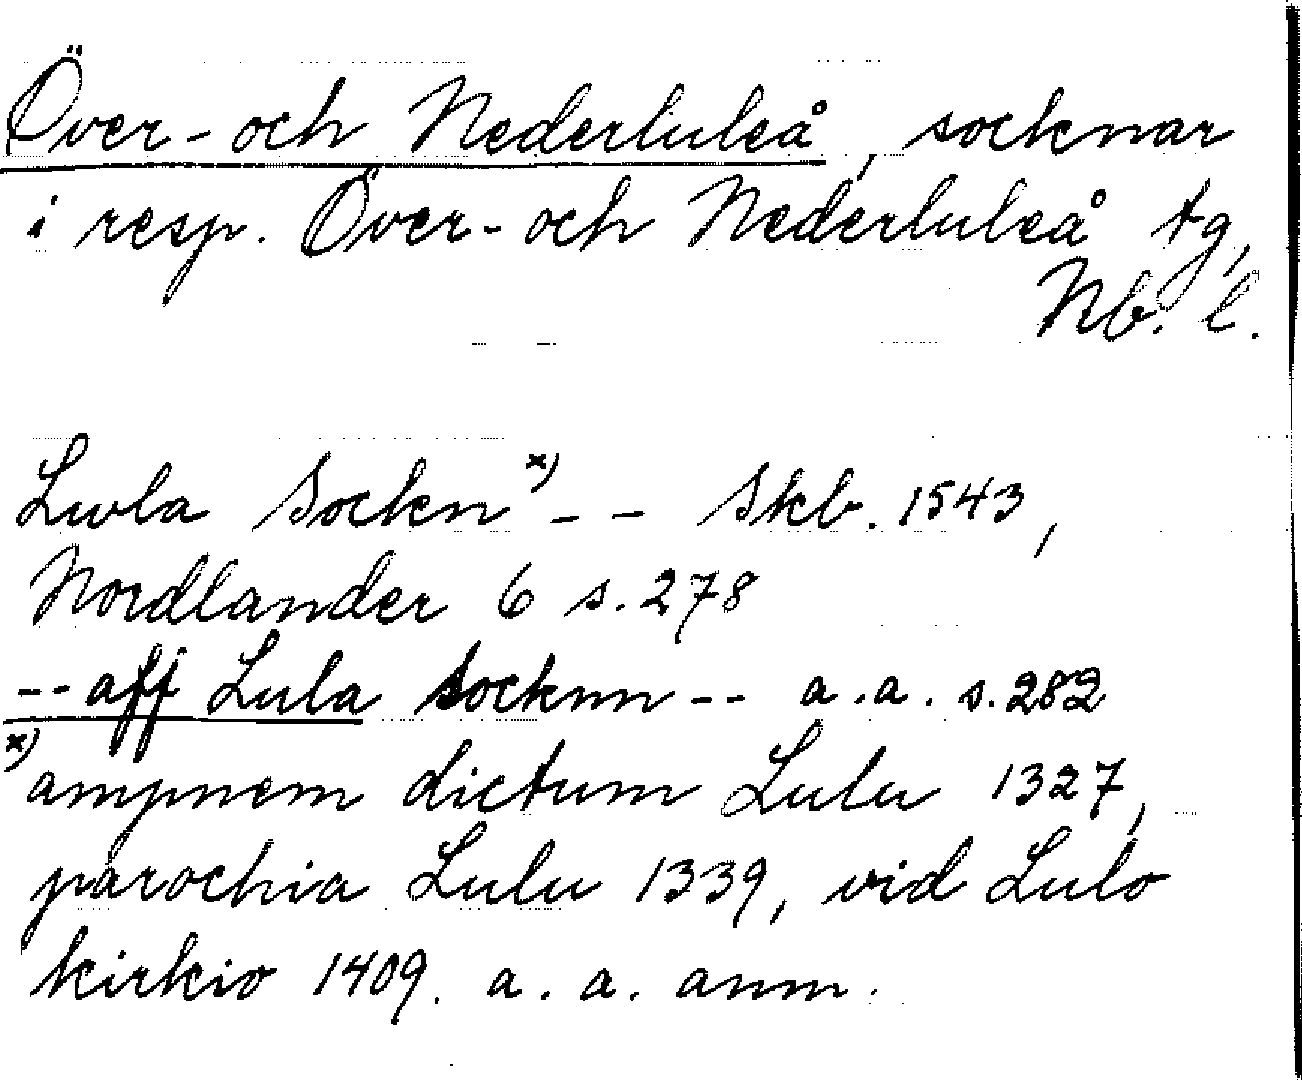 Över- och Nederluleå, socknar
i resp. Över- och Nederluleå tg,
Nb. l.
Lwla Sockn x) - - Skb. 1543,
Nordlander 6 s. 278
-- aff Lula Socknn -- a. a. s. 282
x) ampnem dictum Lulu 1327,
parochia Lulu 1339, vid Lulo
kirkio 1409. a. a. anm.